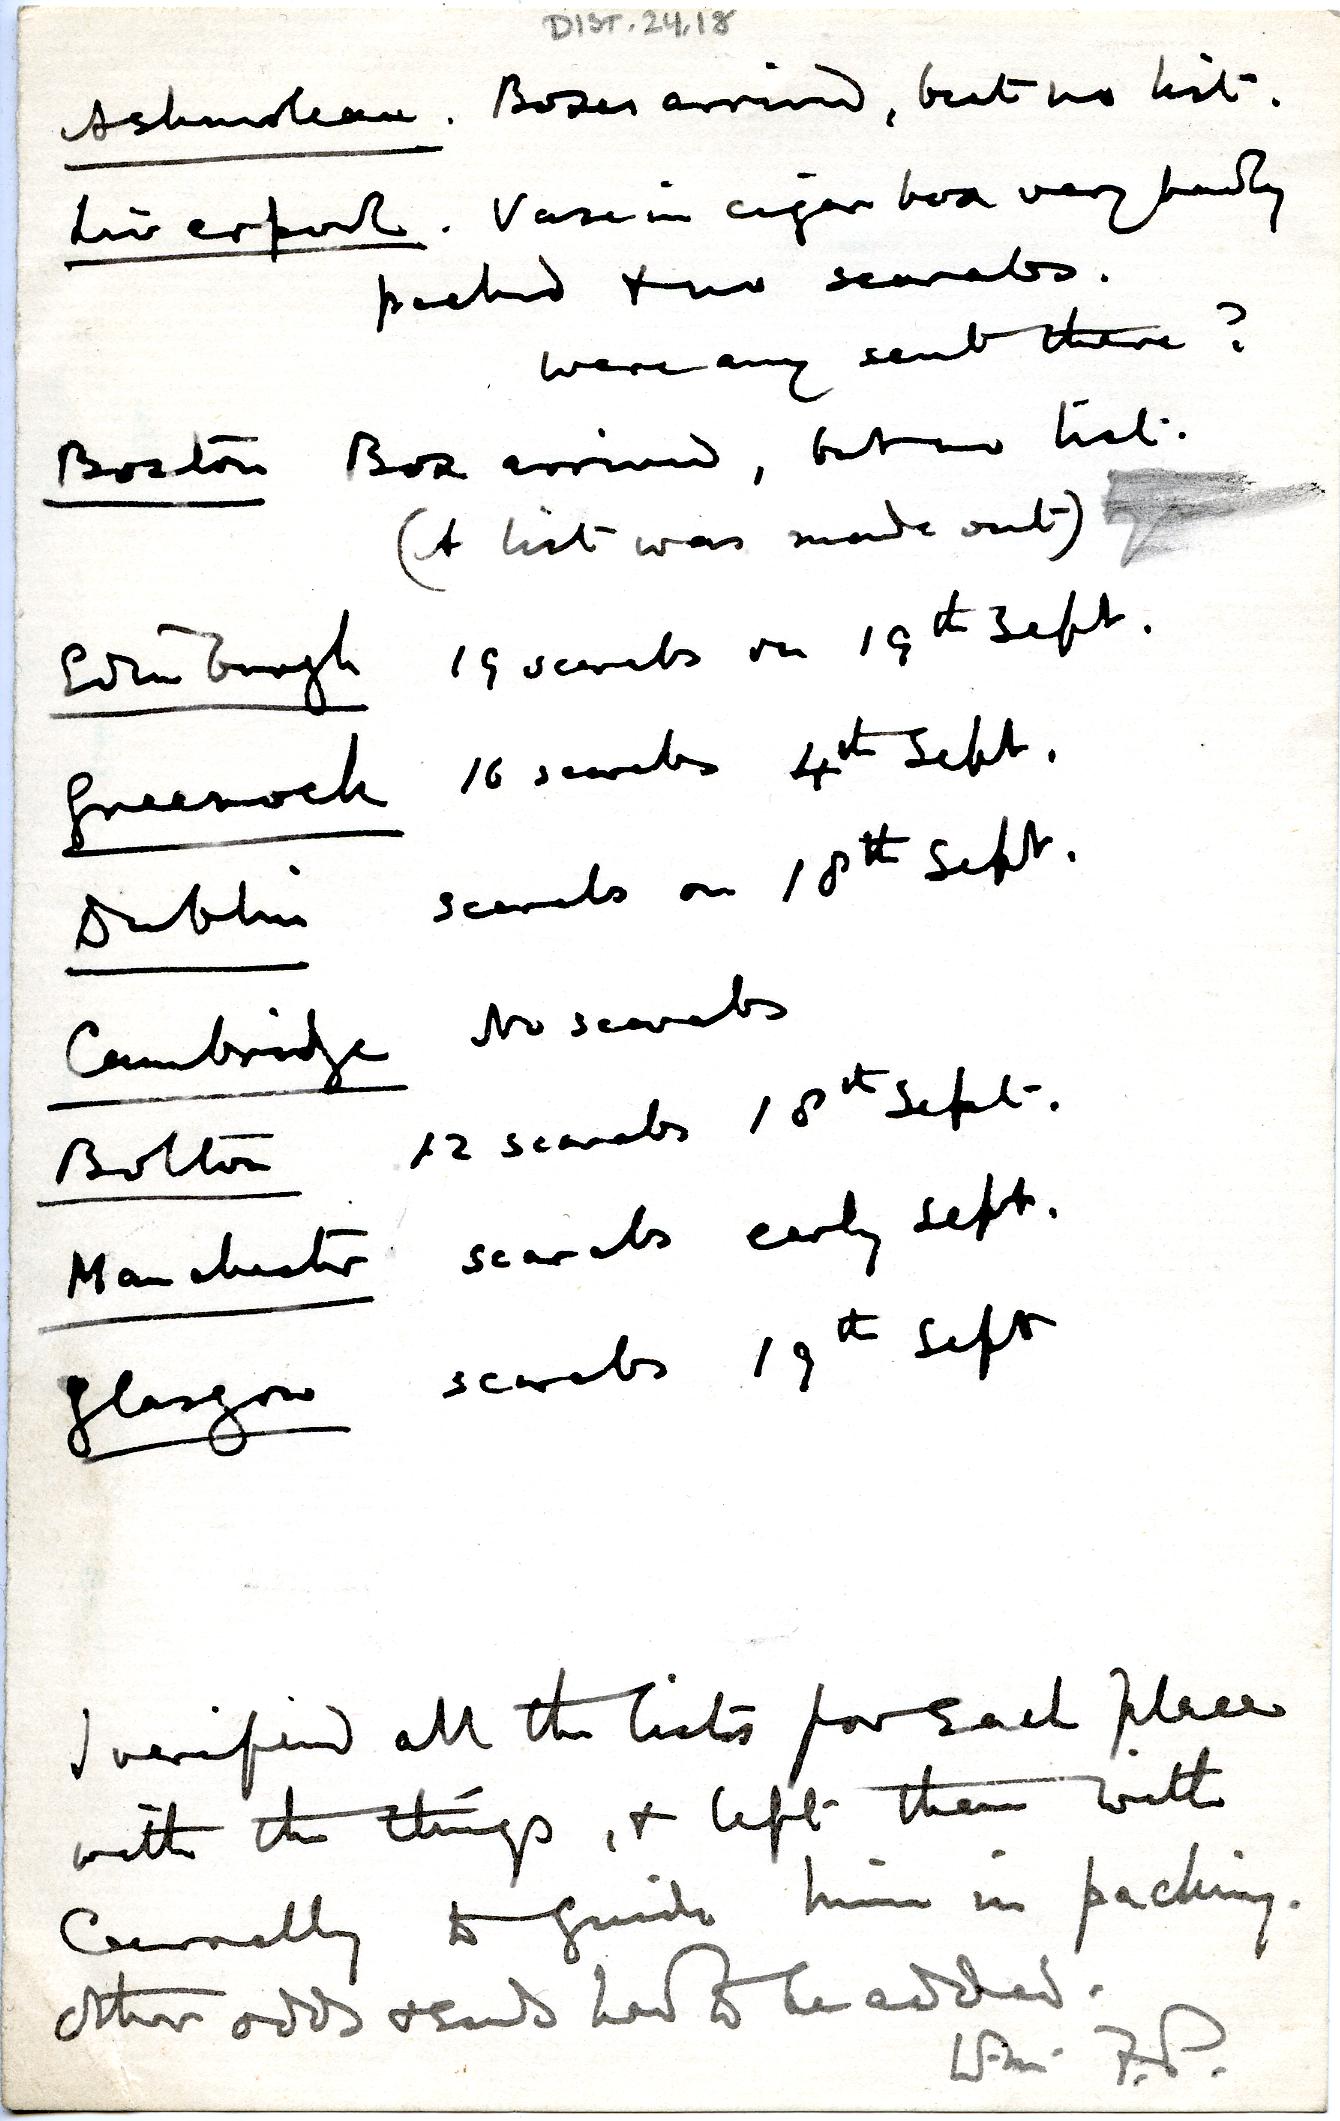 DIST.24.18
Ashmolean. Boxes arrived, but no list.
Liverpool. Vase in cigar box very badly
packed & no scarabs.
were any sent there?
Boston Box arrived, but no list.
(A list was made out)
Edinburgh 19 scarabs on 19th Sept.
Greenock 16 scarabs 4th Sept.
Dublin scarabs on 18th Sept.
Cambridge No scarabs
Bolton 12 scarabs 18th Sept.
Manchester scarabs early Sept.
Glasgow scarabs 19th Sept
I verified all the lists for each place
with the things, & left them with
to guide him in packing.
Other odds & ends had to be added.
Wm. F.P.